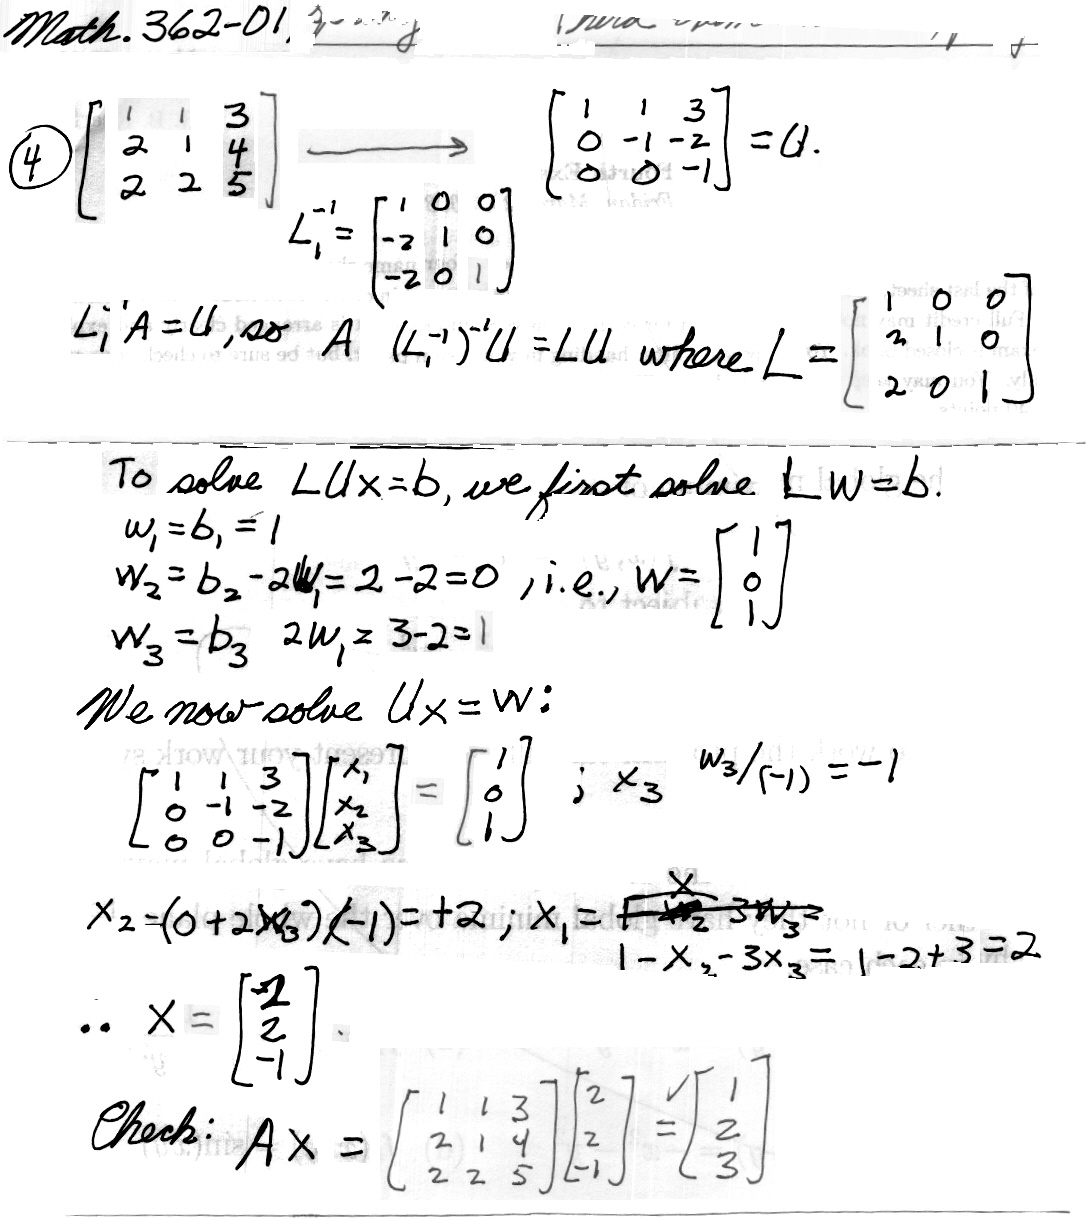 Math. 362-01,
④ [1 1 3; 2 1 4; 2 2 5] ⟶ [1 1 3; 0 -1 -2; 0 0 -1] = U.
L₁⁻¹ = [1 0 0; -2 1 0; -2 0 1]
L₁⁻¹A = U, so A (L₁⁻¹)⁻¹U = LU where L = [1 0 0; 2 1 0; 2 0 1]
To solve LUx=b, we first solve LW=b.
w₁ = b₁ = 1
W₂ = b₂ - 2W₁ = 2 - 2 = 0, i.e., W = [1; 0; 1]
W₃ = b₃ 2W₁ = 3-2 = 1
We now solve Ux = W:
[1 1 3; 0 -1 -2; 0 0 -1] [x₁; x₂; x₃] = [1; 0; 1] ; x₃ W₃/(-1) = -1
x₂ = (0+2x₃)/(-1) = +2 ; x₁ =
1 - x₂ - 3x₃ = 1-2+3 = 2
∴ X = [2; 2; -1].
Check: AX = [1 1 3; 2 1 4; 2 2 5] [2; 2; -1] =✓ [1; 2; 3]